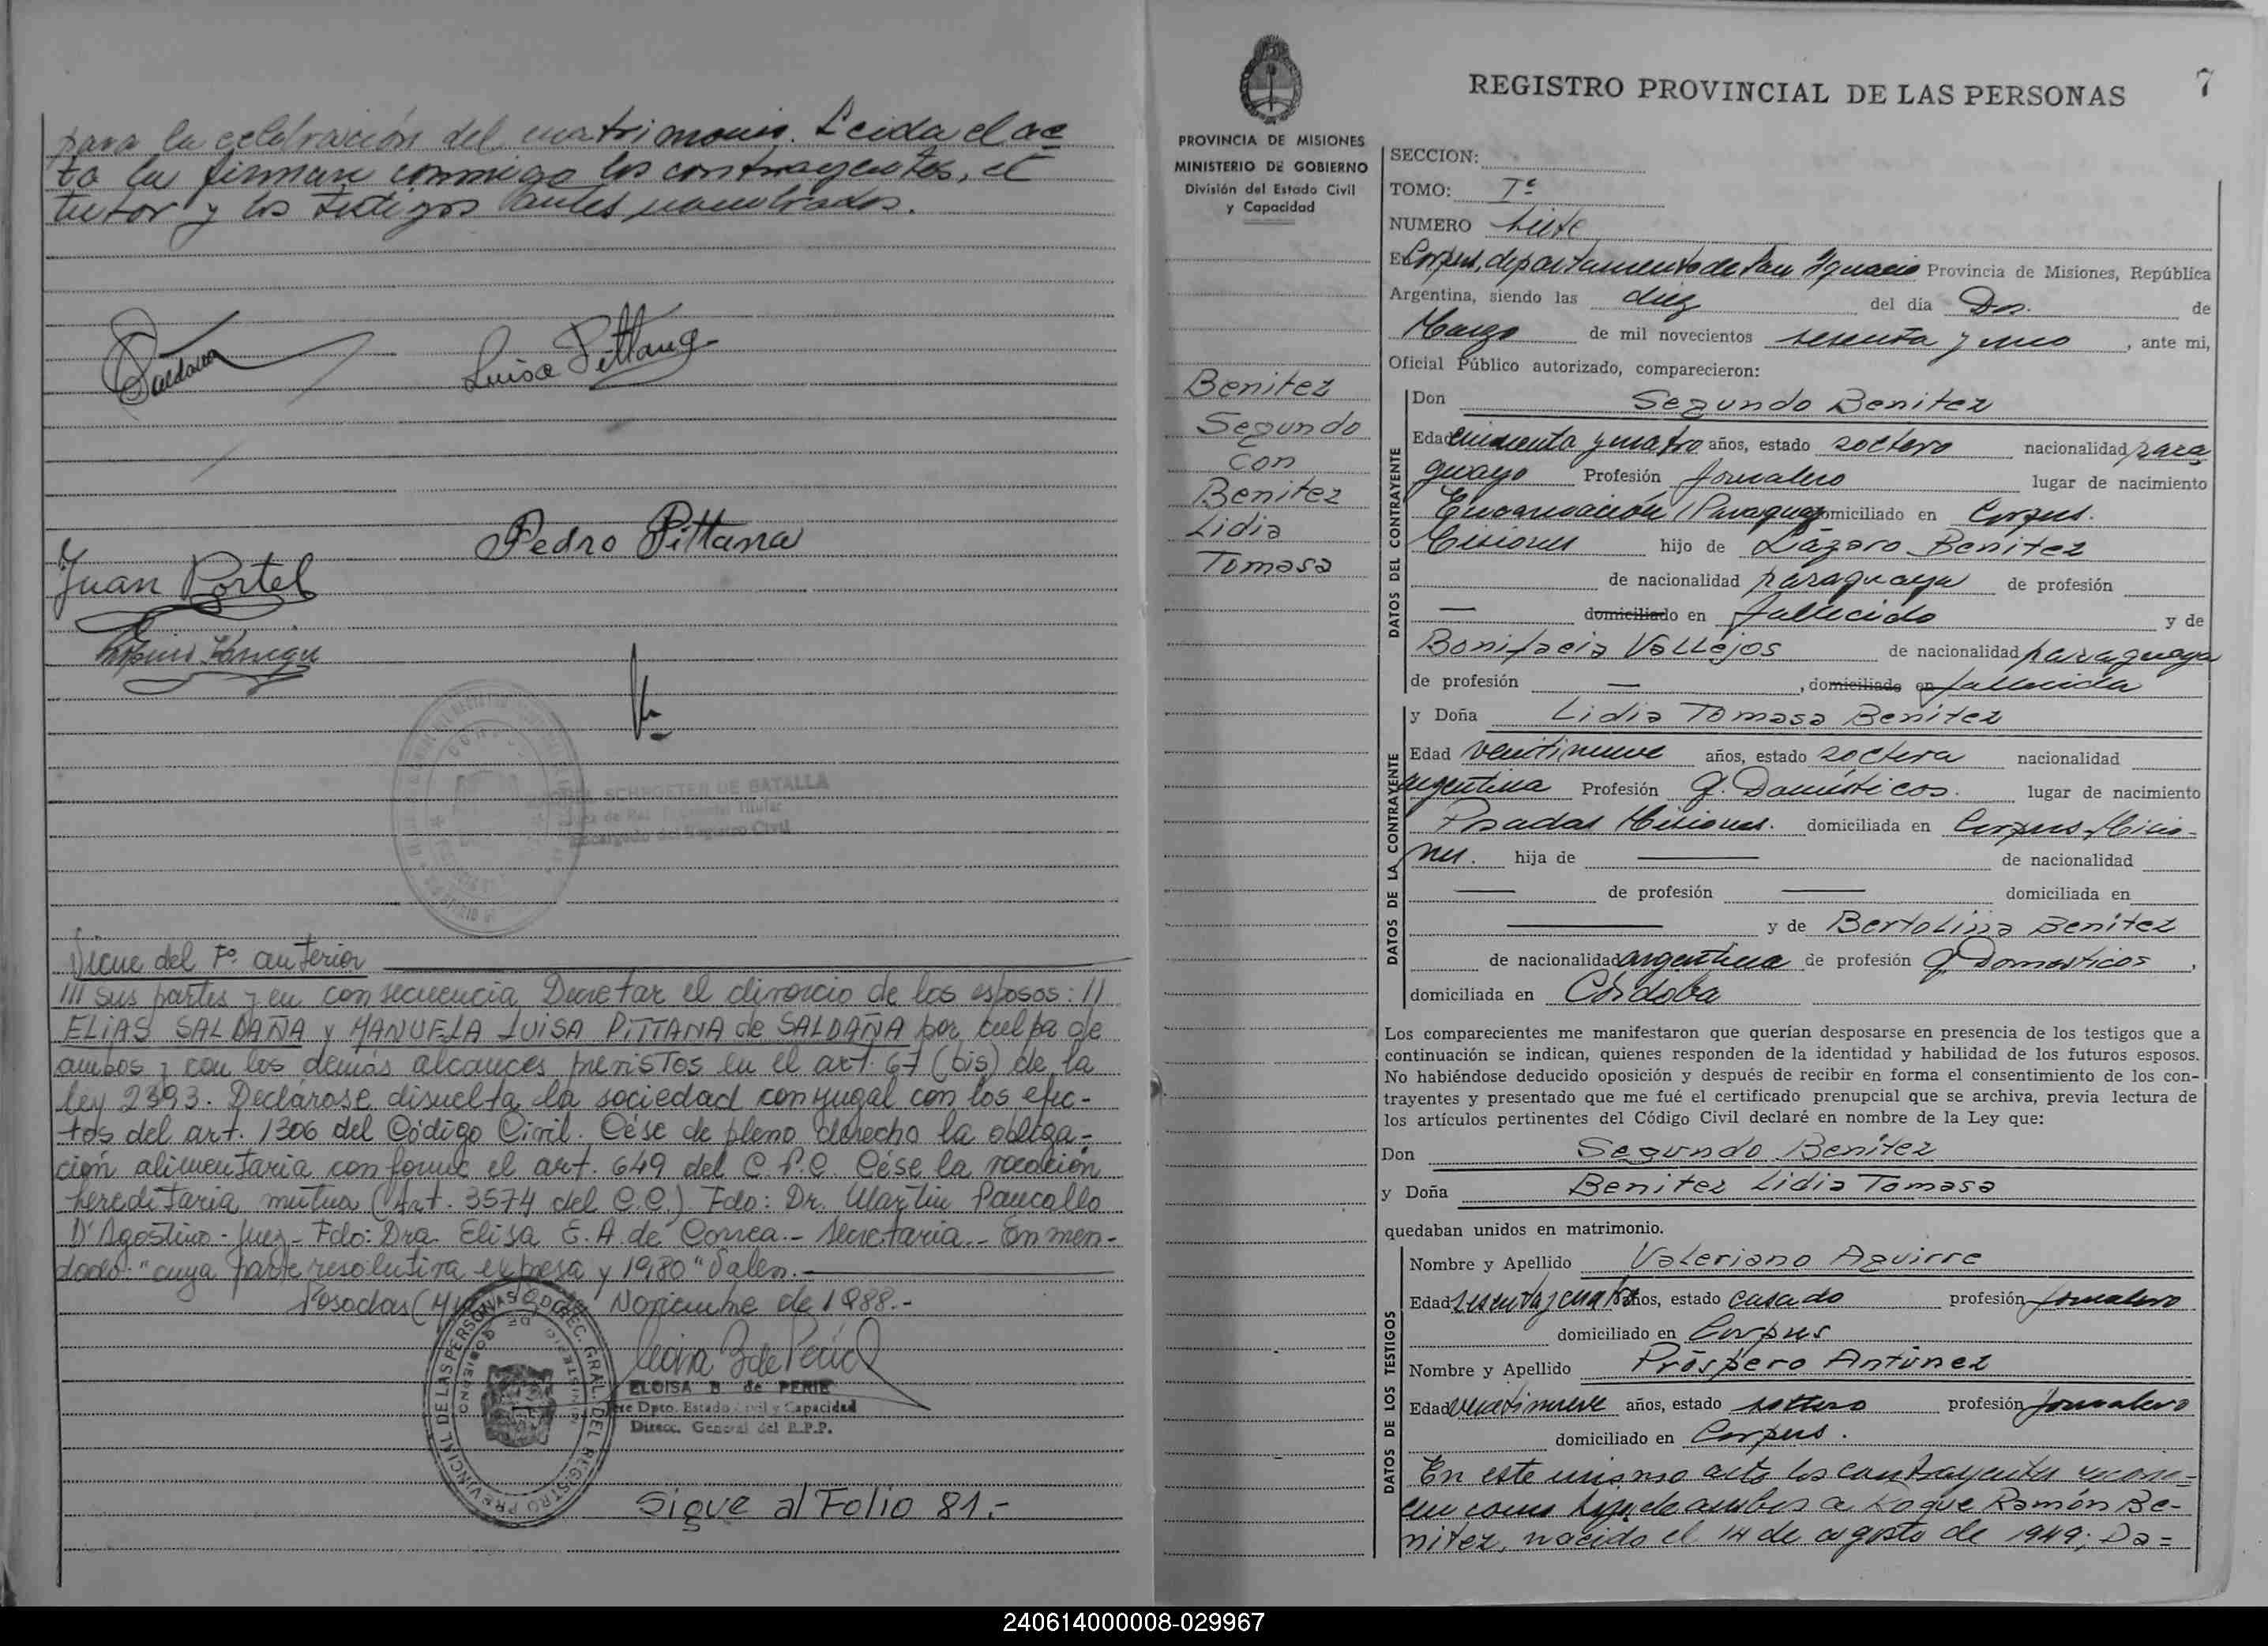 para la celebración del matrimonio. Leida el ac
ta la firman conmigo los contrayentes, el
tutor y los testigos antes nombrados.
Saldaña
Luisa Pittana
Pedro Pittana
Juan Portel
SCHROETER DE BATALLA
Encargado del Registro Civil
Viene del Fº. anterior
/// sus partes y en consecuencia Decretar el divorcio de los esposos: //
ELIAS SALDAÑA y MANUELA LUISA PITTANA de SALDAÑA por culpa de
ambos y con los demás alcances previstos en el art. 67 (bis) de la
ley 2393. Declárase disuelta la sociedad conyugal con los efec-
tos del art. 1306 del Código Civil. Cése de pleno derecho la obliga-
ción alimentaria conforme el art. 649 del C.P.C. Cése la vocación
hereditaria mutua (Art. 3574 del C.C.). Fdo: Dr. Martin Paucallo
D'Agostino - Juez - Fdo: Dra. Elisa E. A. de Correa.- Secretaria.- Enmen-
dado: "cuya parte resolutiva expresa y 1980" Valen.-
Posadas (M) Noviembre de 1988.-
ELOISA B. de PERIE
Dpto. Estado Civil y Capacidad
Direcc. General del R.P.P.
DIREC. GRAL. DEL REGISTRO PROVINCIAL DE LAS PERSONAS
MINISTERIO DE GOBIERNO
Sigue al Folio 81.-
PROVINCIA DE MISIONES
MINISTERIO DE GOBIERNO
División del Estado Civil
y Capacidad
Benitez
Segundo
con
Benitez
Lidia
Tomasa
REGISTRO PROVINCIAL DE LAS PERSONAS
7
SECCION:
TOMO: Iº
NUMERO Siete
En Corpus, departamento de San Ignacio Provincia de Misiones, República
Argentina, siendo las diez del día Dos. de
Marzo de mil novecientos sesenta y uno, ante mi,
Oficial Público autorizado, comparecieron:
DATOS DEL CONTRAYENTE
Don Segundo Benitez
Edad cincuenta y cuatro años, estado soltero nacionalidad para
guayo Profesión jornalero lugar de nacimiento
Encarnación (Paraguay domiciliado en Corpus.
Misiones hijo de Lázaro Benitez
de nacionalidad paraguaya de profesión
— domiciliado en fallecido y de
Bonifacia Vallejos de nacionalidad paraguaya
de profesión — , domiciliada en fallecida
DATOS DE LA CONTRAYENTE
y Doña Lidia Tomasa Benitez
Edad veintinueve años, estado soltera nacionalidad
argentina Profesión q. Domésticos. lugar de nacimiento
Posadas Misiones. domiciliada en Corpus-Misio-
nes. hija de — de nacionalidad
— de profesión — domiciliada en
— y de Bertolina Benitez
de nacionalidad argentina de profesión q. Domesticos,
domiciliada en Córdoba
Los comparecientes me manifestaron que querían desposarse en presencia de los testigos que a
continuación se indican, quienes responden de la identidad y habilidad de los futuros esposos.
No habiéndose deducido oposición y después de recibir en forma el consentimiento de los con-
trayentes y presentado que me fué el certificado prenupcial que se archiva, previa lectura de
los artículos pertinentes del Código Civil declaré en nombre de la Ley que:
Don Segundo Benitez
y Doña Benitez Lidia Tomasa
quedaban unidos en matrimonio.
DATOS DE LOS TESTIGOS
Nombre y Apellido Valeriano Aguirre
Edad sesenta y cuatro años, estado casado profesión jornalero
domiciliado en Corpus
Nombre y Apellido Próspero Antúnez
Edad veintinueve años, estado soltero profesión jornalero
domiciliado en Corpus.
En este mismo acto los contrayentes recono-
cen como hijo de ambos a Roque Ramón Be-
nitez, nacido el 14 de agosto de 1949; Da=
240614000008-029967